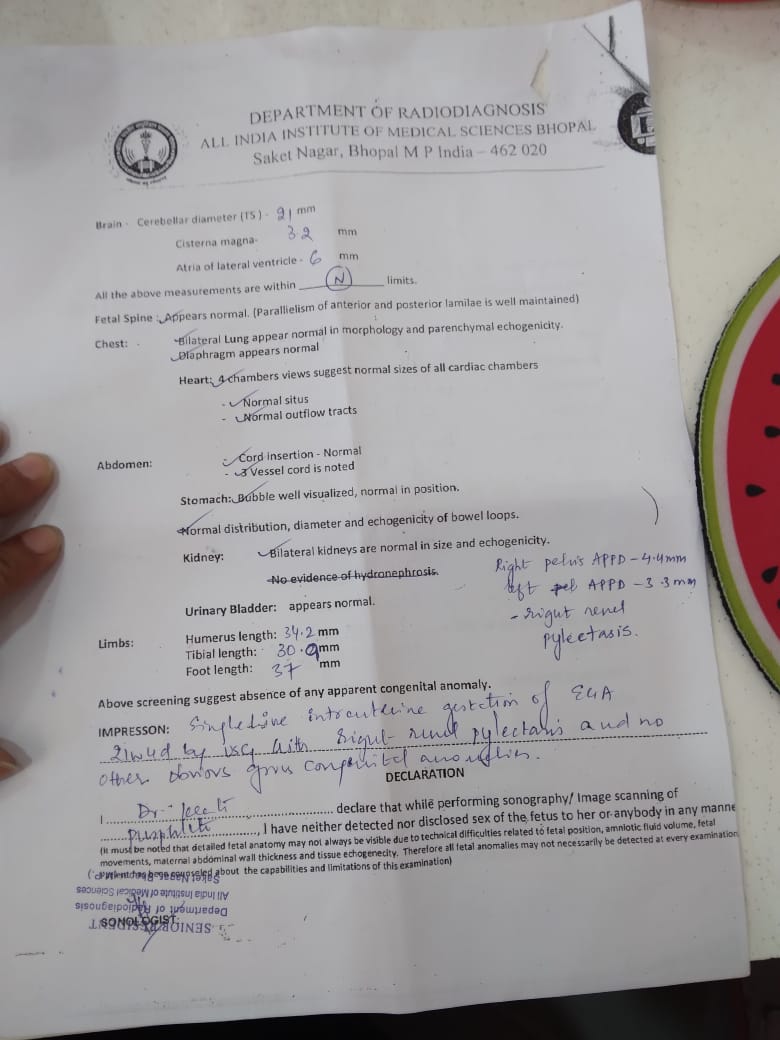 DEPARTMENT OF RADIODIAGNOSIS
ALL INDIA INSTITUTE OF MEDICAL SCIENCES BHOPAL
Saket Nagar, Bhopal M P India – 462 020
Brain - Cerebellar diameter (TS) - 21 mm
Cisterna magna- 3.2 mm
Atria of lateral ventricle - 6 mm
All the above measurements are within N limits.
Fetal Spine : Appears normal. (Parallielism of anterior and posterior lamilae is well maintained)
Chest: Bilateral Lung appear normal in morphology and parenchymal echogenicity.
Diaphragm appears normal
Heart: 4 chambers views suggest normal sizes of all cardiac chambers
- Normal situs
- Normal outflow tracts
Abdomen: - Cord insertion - Normal
- 3 Vessel cord is noted
Stomach: Bubble well visualized, normal in position.
Normal distribution, diameter and echogenicity of bowel loops.
Kidney: Bilateral kidneys are normal in size and echogenicity.
No evidence of hydronephrosis.
Right pelvis APPD - 4.4mm
left APPD - 3.3mm
- right renel
pylectasis.
Urinary Bladder: appears normal.
Limbs: Humerus length: 34.2 mm
Tibial length: 30.9mm
Foot length: 37 mm
Above screening suggest absence of any apparent congenital anomaly.
IMPRESSON: Single live intrauterine gestation of EGA
21w4d by USG with right renal pylectasis and no
other obvious gross congenital anomalies.
DECLARATION
I Dr. declare that while performing sonography/ Image scanning of
, I have neither detected nor disclosed sex of the fetus to her or anybody in any manne
(It must be noted that detailed fetal anatomy may not always be visible due to technical difficulties related to fetal position, amniotic fluid volume, fetal
movements, maternal abdominal wall thickness and tissue echogenecity. Therefore all fetal anomalies may not necessarily be detected at every examination
about the capabilities and limitations of this examination)
All India Institute of Medical Sciences
Department of Radiodiagnosis
SONOLOGIST
SENIOR RESIDENT